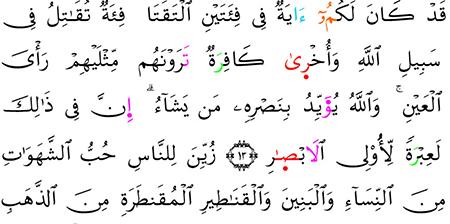 قَدْ كَانَ لَكُمُۥٓ ءَايَةٌ فِى فِئَتَيْنِ ٱلْتَقَتَا فِئَةٌ تُقَٰتِلُ فِى
سَبِيلِ ٱللَّهِ وَأُخْرِىٰ كَافِرَةٌ تَرَوْنَهُم مِّثْلَيْهِمْ رَأْىَ
ٱلْعَيْنِ ۚ وَٱللَّهُ يُؤَيِّدُ بِنَصْرِهِۦ مَن يَشَآءُ ۗ إِنَّ فِى ذَٰلِكَ
لَعِبْرَةً لِّأُو۟لِى ٱلَابْصٰ۪رِ ﴿١٣﴾ زُيِّنَ لِلنَّاسِ حُبُّ ٱلشَّهَوَٰتِ
مِنَ ٱلنِّسَآءِ وَٱلْبَنِينَ وَٱلْقَنَٰطِيرِ ٱلْمُقَنطَرَةِ مِنَ ٱلذَّهَبِ